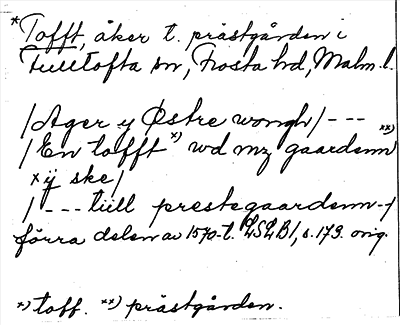 *Tofft, åker t. prästgården i
Fulltofta sn, Frosta hd, Malm. l.
/Ager y Østre wongh/ ---
/En tofft x) wd mz gaardenn xx)
x ij ske/
/--- till prestegaardenn-/
förra delen av 1570-t. LSLB1, s. 179. orig.
x) toff. xx) prästgården.